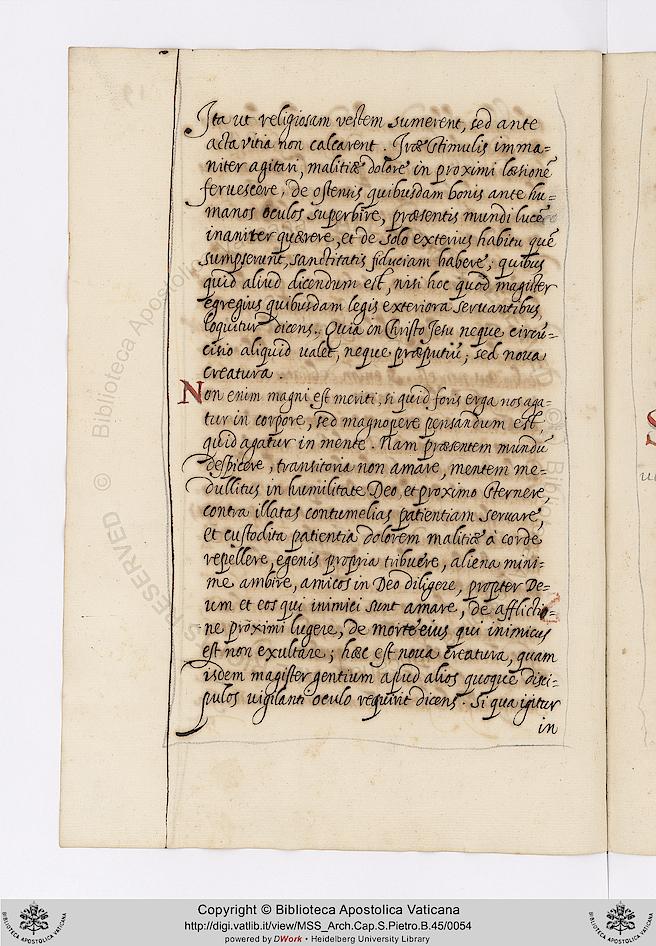 Ita ut religiosam vestem sumerent, sed ante
acta vitia non calcarent. Iræ stimulis imma=
niter agitari, malitiæ dolore in proximi læsionē
fervescere, de ostensis quibusdam bonis ante hu=
manos oculos superbire, præsentis mundi lucrē
inaniter quærere, et de solo exterius habitu quē
sumpserunt, sanctitatis fiduciam habere; quibus
quid aliud dicendum est, nisi hoc quod magister
egregius quibusdam legis exteriora servantibus
loquitur dicens. Quia in Christo Iesu neque circū=
cisio aliquid valet, neque præputiū; sed nova
creatura.
Non enim magni est meriti, si quid foris erga nos aga=
tur in corpore, sed magnopere pensandum est,
quid agatur in mente. Nam præsentem mundū
despicere, transitoria non amare, mentem me=
dullitus in humilitate Deo, et proximo sternere,
contra illatas contumelias patientiam servare,
et custodita patientia dolorem malitiæ à corde
repellere, egenis propria tribuere, aliena mini=
me ambire, amicos in Deo diligere, propter De=
um et eos qui inimici sunt amare, de afflictio=
ne proximi lugere, de morte eius qui inimicus
est non exultare; hæc est nova creatura, quam
isdem magister gentium apud alios quoque disci=
pulos vigilanti oculo requirit dicens. Si qua igitur
in
© Biblioteca Apostolica
Copyright © Biblioteca Apostolica Vaticana
http://digi.vatlib.it/view/MSS_Arch.Cap.S.Pietro.B.45/0054
powered by DWork • Heidelberg University Library